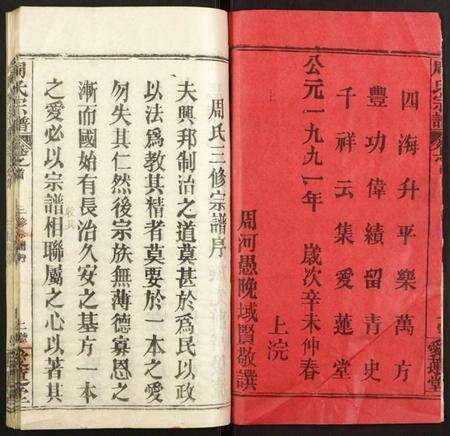 周氏宗譜
四海升平樂萬方
豐功偉績留青史
千祥云集愛蓮堂
公元一九九一年 歲次辛未仲春
上浣
周河愚晚域賢敬譔
愛蓮堂
周氏三修宗譜序
夫興邦制治之道莫甚於爲民以政
以法爲教其精者莫要於一本之愛
勿失其仁然後宗族無薄德寡恩之
漸而國始有長治久安之基方一本
之愛必以宗譜相聯屬之心以著其
周氏宗譜 卷之首
三修譜序